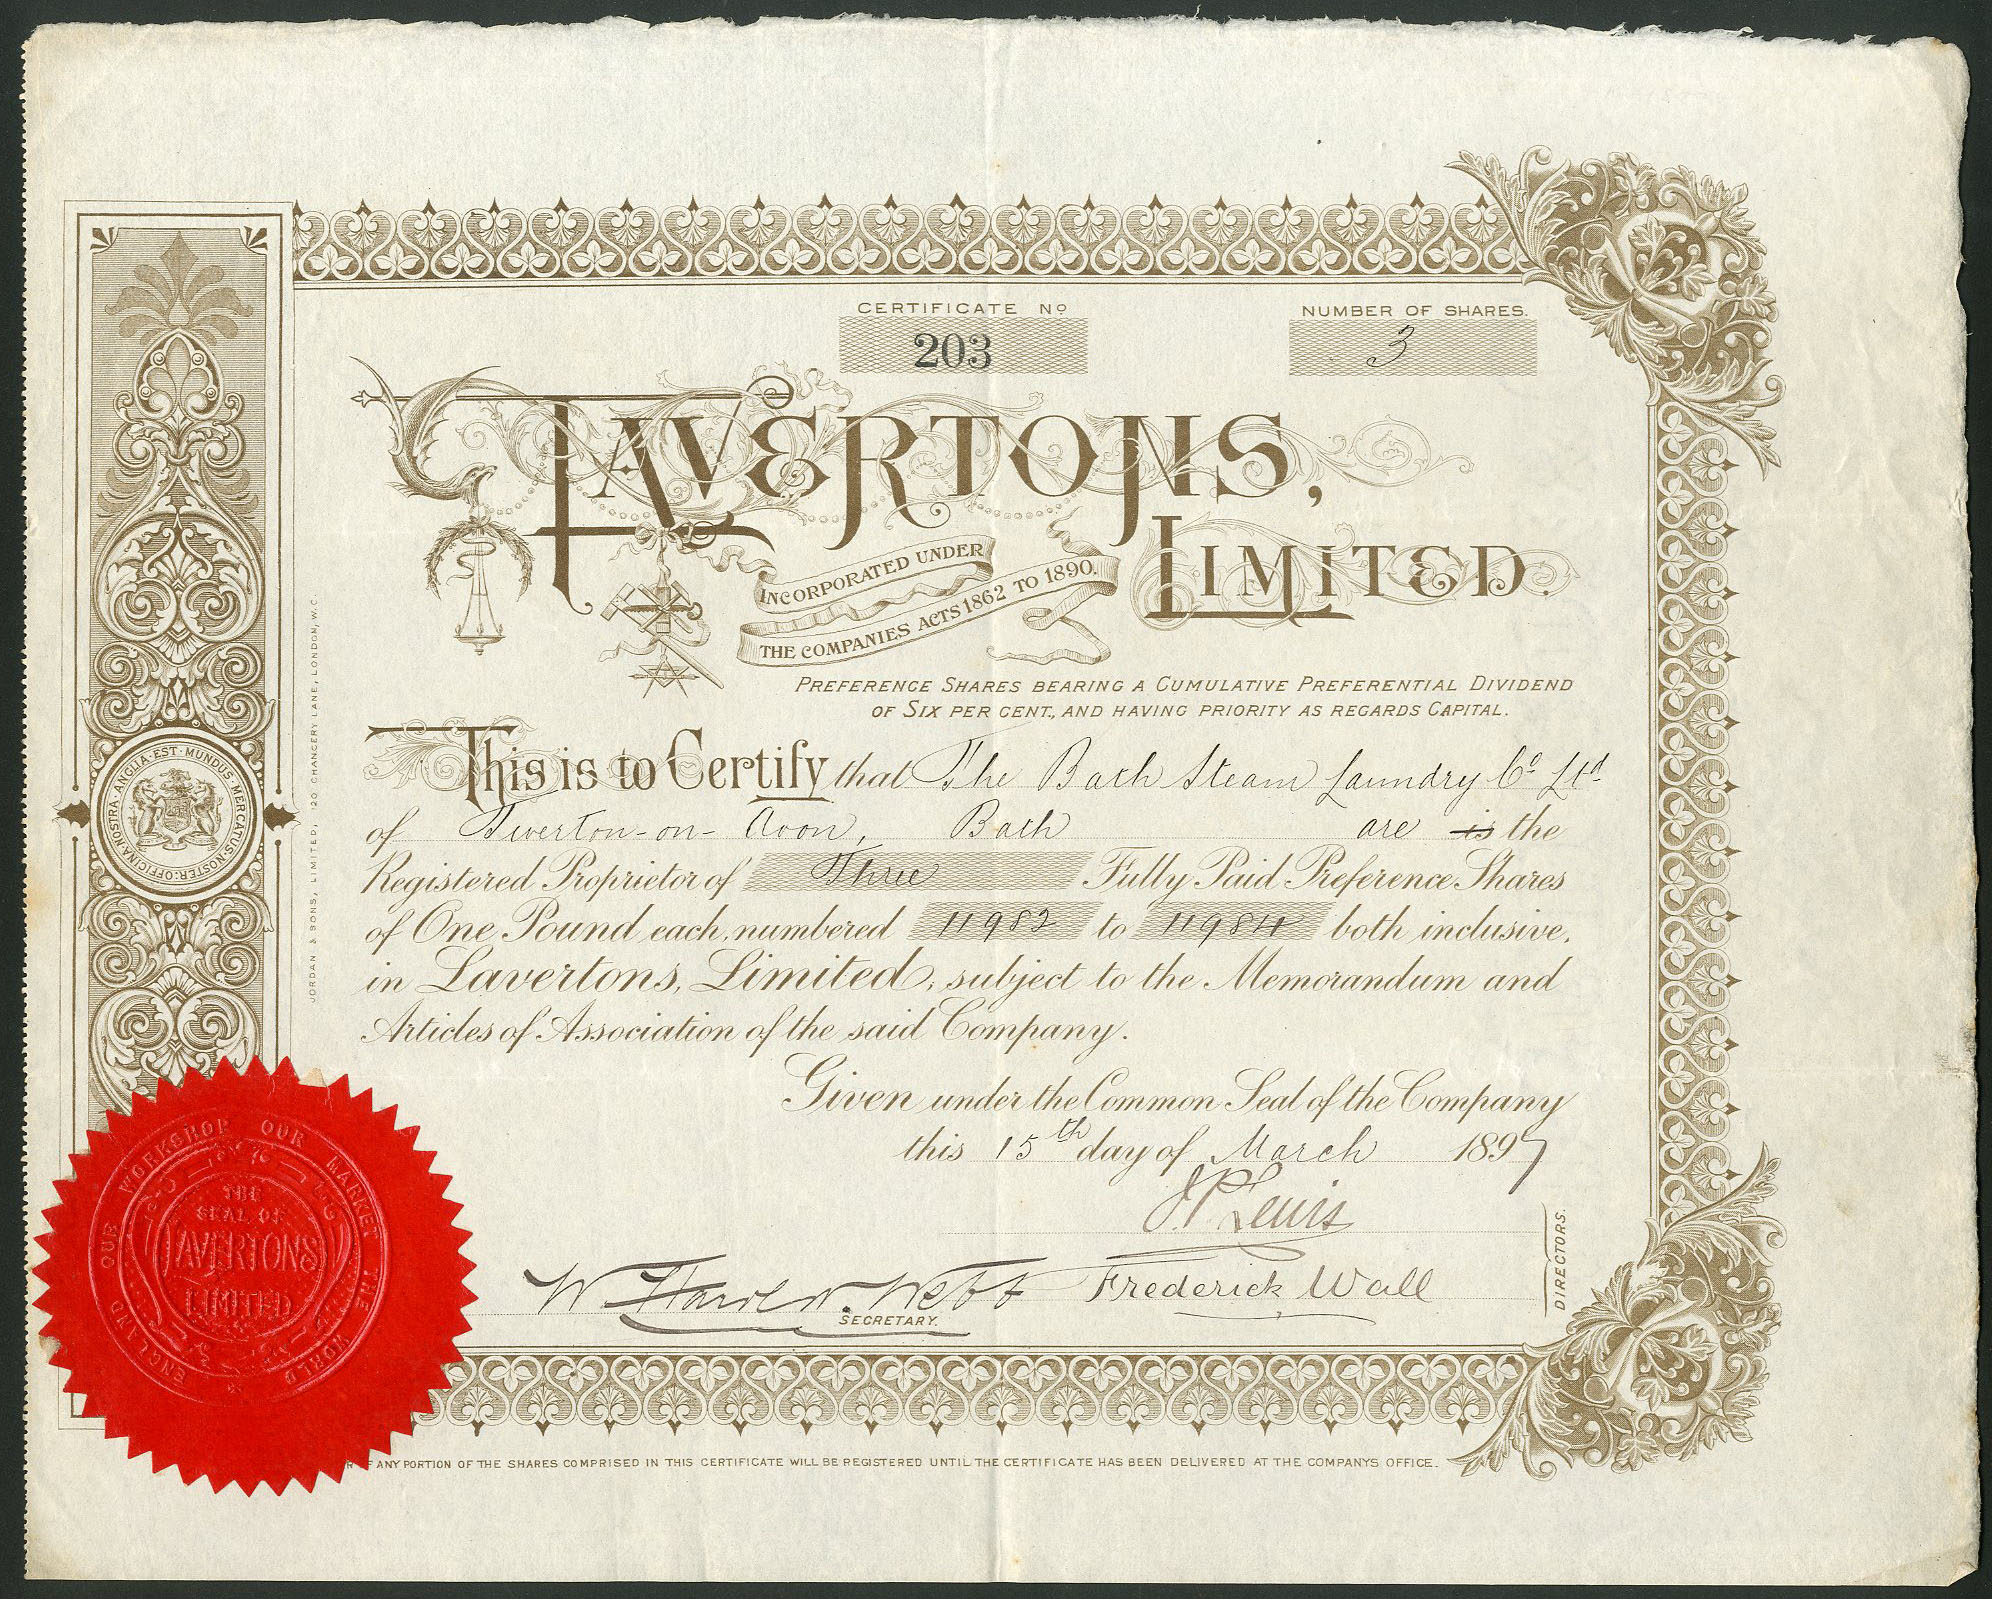 CERTIFICATE Nº
203
NUMBER OF SHARES.
3
LAVERTONS,
LIMITED.
INCORPORATED UNDER
THE COMPANIES ACTS 1862 TO 1890.
PREFERENCE SHARES BEARING A CUMULATIVE PREFERENTIAL DIVIDEND
OF SIX PER CENT., AND HAVING PRIORITY AS REGARDS CAPITAL.
This is to Certify that The Bath Steam Laundry Co Ltd
of Twerton-on-Avon, Bath are is the
Registered Proprietor of Three Fully Paid Preference Shares
of One Pound each, numbered 11982 to 11984 both inclusive,
in Lavertons, Limited, subject to the Memorandum and
Articles of Association of the said Company.
Given under the Common Seal of the Company
this 15th day of March 1897
J P Lewis
W Webb Frederick Wall
SECRETARY.
DIRECTORS.
OF ANY PORTION OF THE SHARES COMPRISED IN THIS CERTIFICATE WILL BE REGISTERED UNTIL THE CERTIFICATE HAS BEEN DELIVERED AT THE COMPANYS OFFICE.
JORDAN & SONS, LIMITED, 120 CHANCERY LANE, LONDON, W.C.
OFFICINA·NOSTRA·ANGLIA·EST·MUNDUS·MERCATUS·NOSTER:
ENGLAND OUR WORKSHOP OUR MARKET THE WORLD
THE
SEAL OF
LAVERTONS
LIMITED